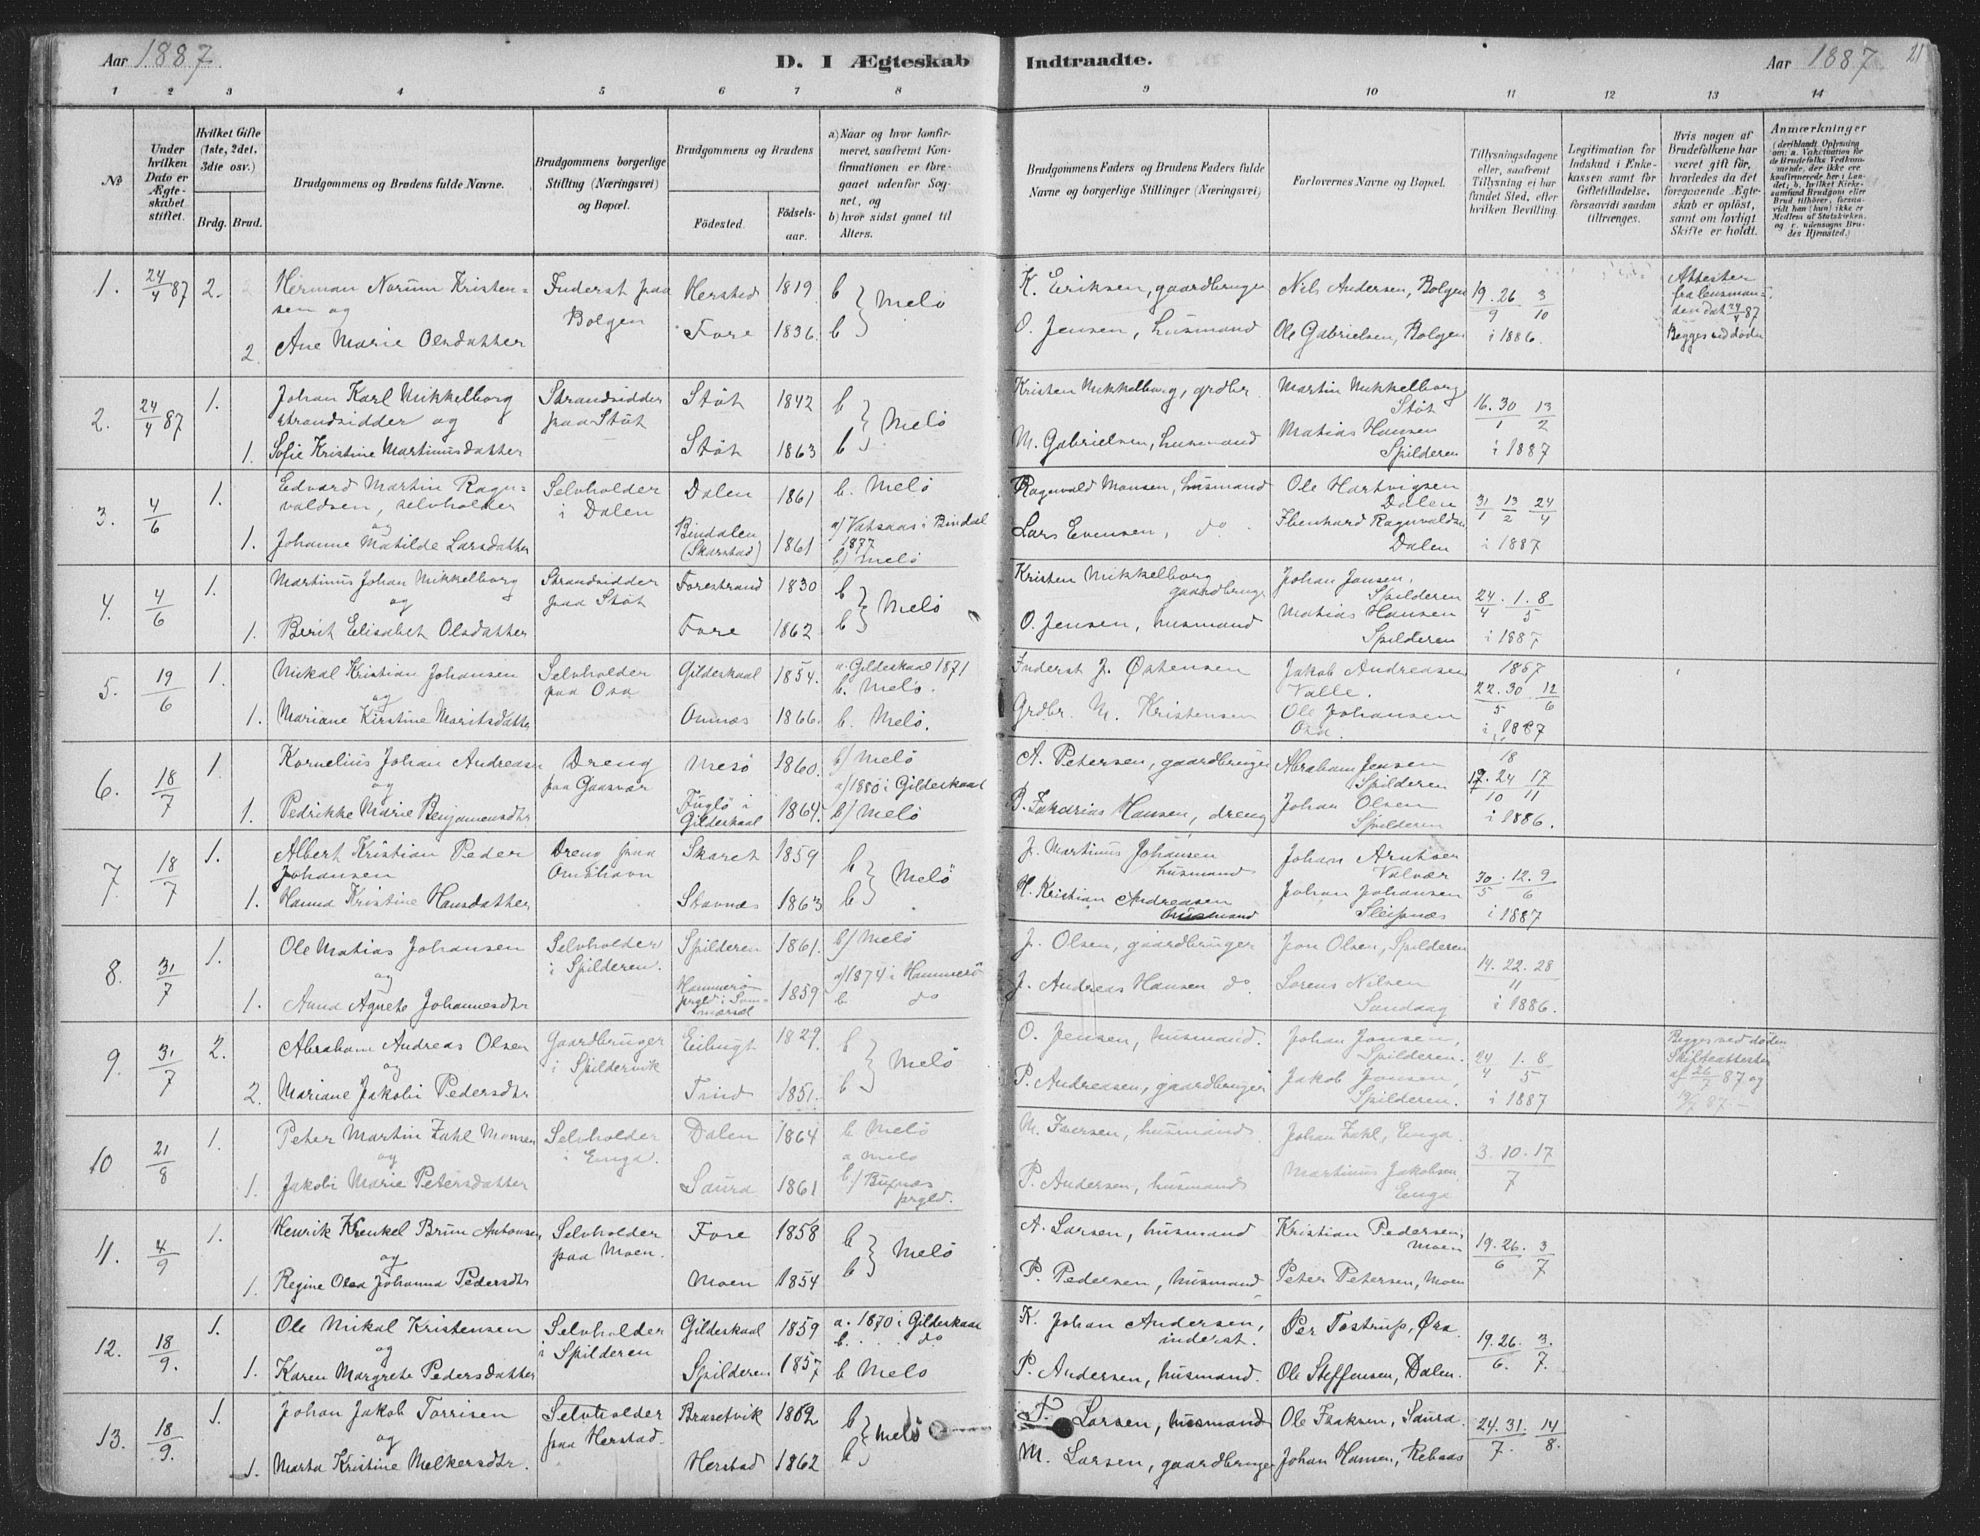 Aar 1887. D. I Ægteskab Indtraadte. Aar 1887. 21
1 2 3 4 5 6 7 8 9 10 11 12 13 14
№
Under hvilken Dato er Ægteskabet stiftet.
Hvilket Gifte (1ste, 2det, 3die osv.)
Brdg. Brud.
Brudgommens og Brudens fulde Navne.
Brudgommens borgerlige Stilling (Næringsvei) og Bopæl.
Brudgommens og Brudens
Födested. Födselsaar.
a) Naar og hvor konfirmeret, saafremt Konfirmationen er foregaaet udenfor Sognet, og
b) hvor sidst gaaet til Alters.
Brudgommens Faders og Brudens Faders fulde Navne og borgerlige Stillinger (Næringsvei)
Forlovernes Navne og Bopæl.
Tillysningsdagene eller, saafremt Tillysning ei har fundet Sted, efter hvilken Bevilling.
Legitimation for Indskud i Enkekassen samt for Giftetilladelse, forsaavidt saadan tiltrænges.
Hvis nogen af Brudefolkene har været gift för, hvorledes da det foregaaende Ægteskab er oplöst, samt om lovligt Skifte er holdt.
Anmærkninger
1. 24/4 87 2. Herman Norum Kristensen og Inderst paa Bolgen Herstad 1819 b } Melö K. Eriksen, gaardbruger Nils Andersen, Bolgen 19. 26/9 3/10 i 1886. Attester fra Lensmanden dat 24/4 87
2. Ane Marie Olsdatter Fore 1836. b O. Jensen, husmand Ole Gabrielsen, Bolgen Begges ved döden
2. 24/4 87 1. Johan Karl Mikkelborg strandsidder og Strandsidder paa Stöt Stöt 1842 b } Melö Kristen Mikkelborg, grdbr. Martin Mikkelborg Stöt 16. 30/1 13/2 i 1887
1. Sofie Kristine Martinusdatter Stöt 1863 b M. Gabrielsen, husmand Matias Hansen Spilderen
3. 4/6 1. Edvard Martin Ragnvaldsen, selvholder og Selvholder i Dalen Dalen 1861 b. Melö Ragnvald Monsen, husmand Ole Hartvigsen Dalen 31/1 13/2 24/4 i 1887
1. Johanne Matilde Larsdatter Bindalen (Skarstad) 1861 a/ Vatsaas i Bindal 1877 b) Melö Lars Evensen, do. Ebenhard Ragnvaldsen Dalen
4. 4/6 1. Martinus Johan Mikkelborg og Strandsidder paa Stöt Forestrand 1830 b } Melö Kristen Mikkelborg gaardbruger Johan Jansen, Spilderen 24/4. 1. 8/5 i 1887
1. Berit Elisabet Olsdatter Fore 1862 b O. Jensen, husmand Matias Hansen Spilderen
5. 19/6 1. Mikal Kristian Johansen og Selvholder paa Osa Gildeskaal 1854. a. Gildeskaal 1871 b. Melö. Inderst J. Östensen Jakob Andreasen Valle. 22. 30/5. 12/6 i 1887
1. Mariane Kirstine Maritsdatter Omnæs 1866. b. Melö. Grdbr. M. Kristensen Ole Johansen Osa.
6. 18/7 1. Kornelius Johan Andreasen og Dreng paa Gaasvær Mesö 1860. b/ Melö A. Petersen, gaardbruger Abraham Jensen Spilderen 24/10 17/11 i 1886.
1. Pedrikke Marie Benjamensdtr Fuglö i Gildeskaal 1864. a/ 1880 i Gildeskaal b/ Melö B. Zakarias Hansen, dreng Johan Olsen Spilderen
7. 18/7 1. Albert Kristian Peder Johansen Dreng paa Omshavn Skaret 1859 b } Melö J. Martinus Johansen husmand Johan Arntsen Valvær 30/5. 12. 9/6 i 1887
1. Hanna Kristine Hansdatter Stavnæs 1863 b H. Kristian Andreasen husmand Johan Johansen Sleipnæs
8. 31/7 1. Ole Matias Johansen og Selvholder i Spilderen. Spilderen 1861. b/ Melö J. Olsen, gaardbruger Jon Olsen, Spilderen 14. 22. 28/11 i 1886.
1. Anna Agnete Johannesdtr Hammerö prgld. 1859 a/ 1874 i Hammerö b do J. Andreas Hansen do. Sörens Nilsen Sundaag
9. 31/7 2. Abraham Andreas Olsen og Gaardbruger i Spildervik Eibugt 1829. b } Melö O. Jensen, husmand. Johan Jansen, Spilderen. 24/4 1. 8/5 i 1887 Begges ved döden Skifteattester af 26/7 87 og 19/7 87
2. Mariane Jakobi Pedersdtr Tind 1851. b P. Andreasen, gaardbruger Jakob Jansen, Spilderen.
10 21/8 1. Peter Martin Zahl Monsen og Selvholder i Enga. Dalen 1864 b Melö M. Iversen, husmand Johan Zahl, Enga. 3. 10. 17/7
1. Jakobi Marie Petersdatter Saura 1861 a Melö b/ Buxnæs prgld. P. Andersen, husmand Martinus Jakobsen, Enga
11. 4/9 1. Henrik Krenkel Brun Antonsen og Selvholder paa Moen. Fore 1858 b } Melö A. Larsen, husmand Kristian Pedersen, Moen 19. 26/6. 3/7
1. Regine Olea Johanna Pedersdtr Moen 1854 b P. Pedersen, husmand Peter Petersen, Moen
12. 18/9. 1. Ole Mikal Kristensen og Selvholder i Spilderen Gildeskaal 1859 a. 1870 i Gildeskaal b. do K. Johan Andersen, inderst. Per Tostrup, Osa. 19. 26/6. 3/7.
1. Karen Margrete Pedersdatter Spilderen 1857 b Melö P. Andersen, husmand. Ole Steffensen, Dalen.
13. 18/9. 1. Johan Jakob Torrisen og Selvholder paa Herstad. Brasetvik 1862 b } Melö T. Larsen, husmand Ole Isaksen, Saura. 24. 31/7. 14/8.
1. Marta Kristine Melkersdtr. Herstad 1862 b M. Larsen, gaardbruger Johan Hansen, Rebaas